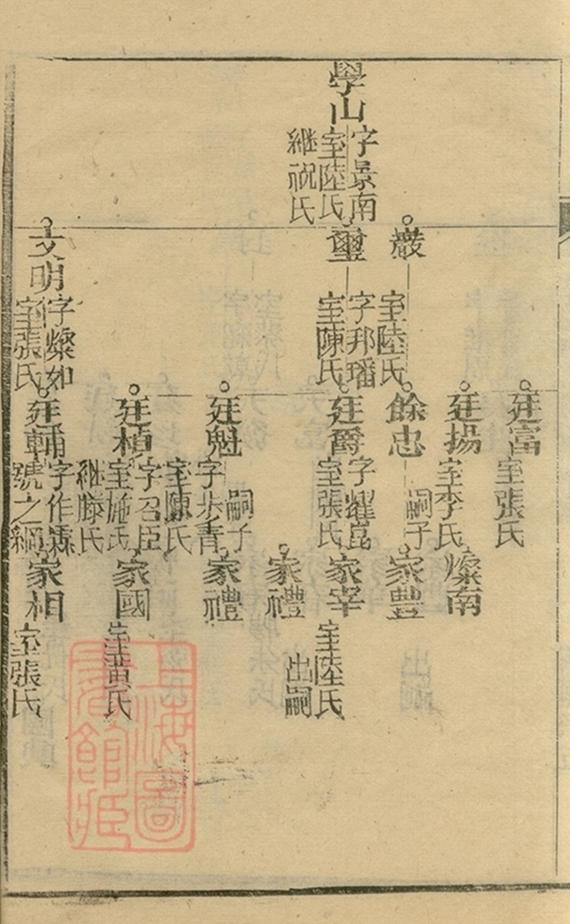 學山
字景南
室陸氏
継祝氏
巖
室陸氏
璽
字邦璠
室陳氏
文明
字燦如
室張氏
廷富
室張氏
廷揚
室李氏
餘忠
嗣子
廷爵
字耀崑
室張氏
廷魁
嗣子
字步青
室陳氏
廷楨
字召臣
室施氏
継滕氏
廷輔
字作霖
號之綱
燦南
家豊
家宰
室陸氏
家禮
出嗣
家禮
家國
室黄氏
家相
室張氏